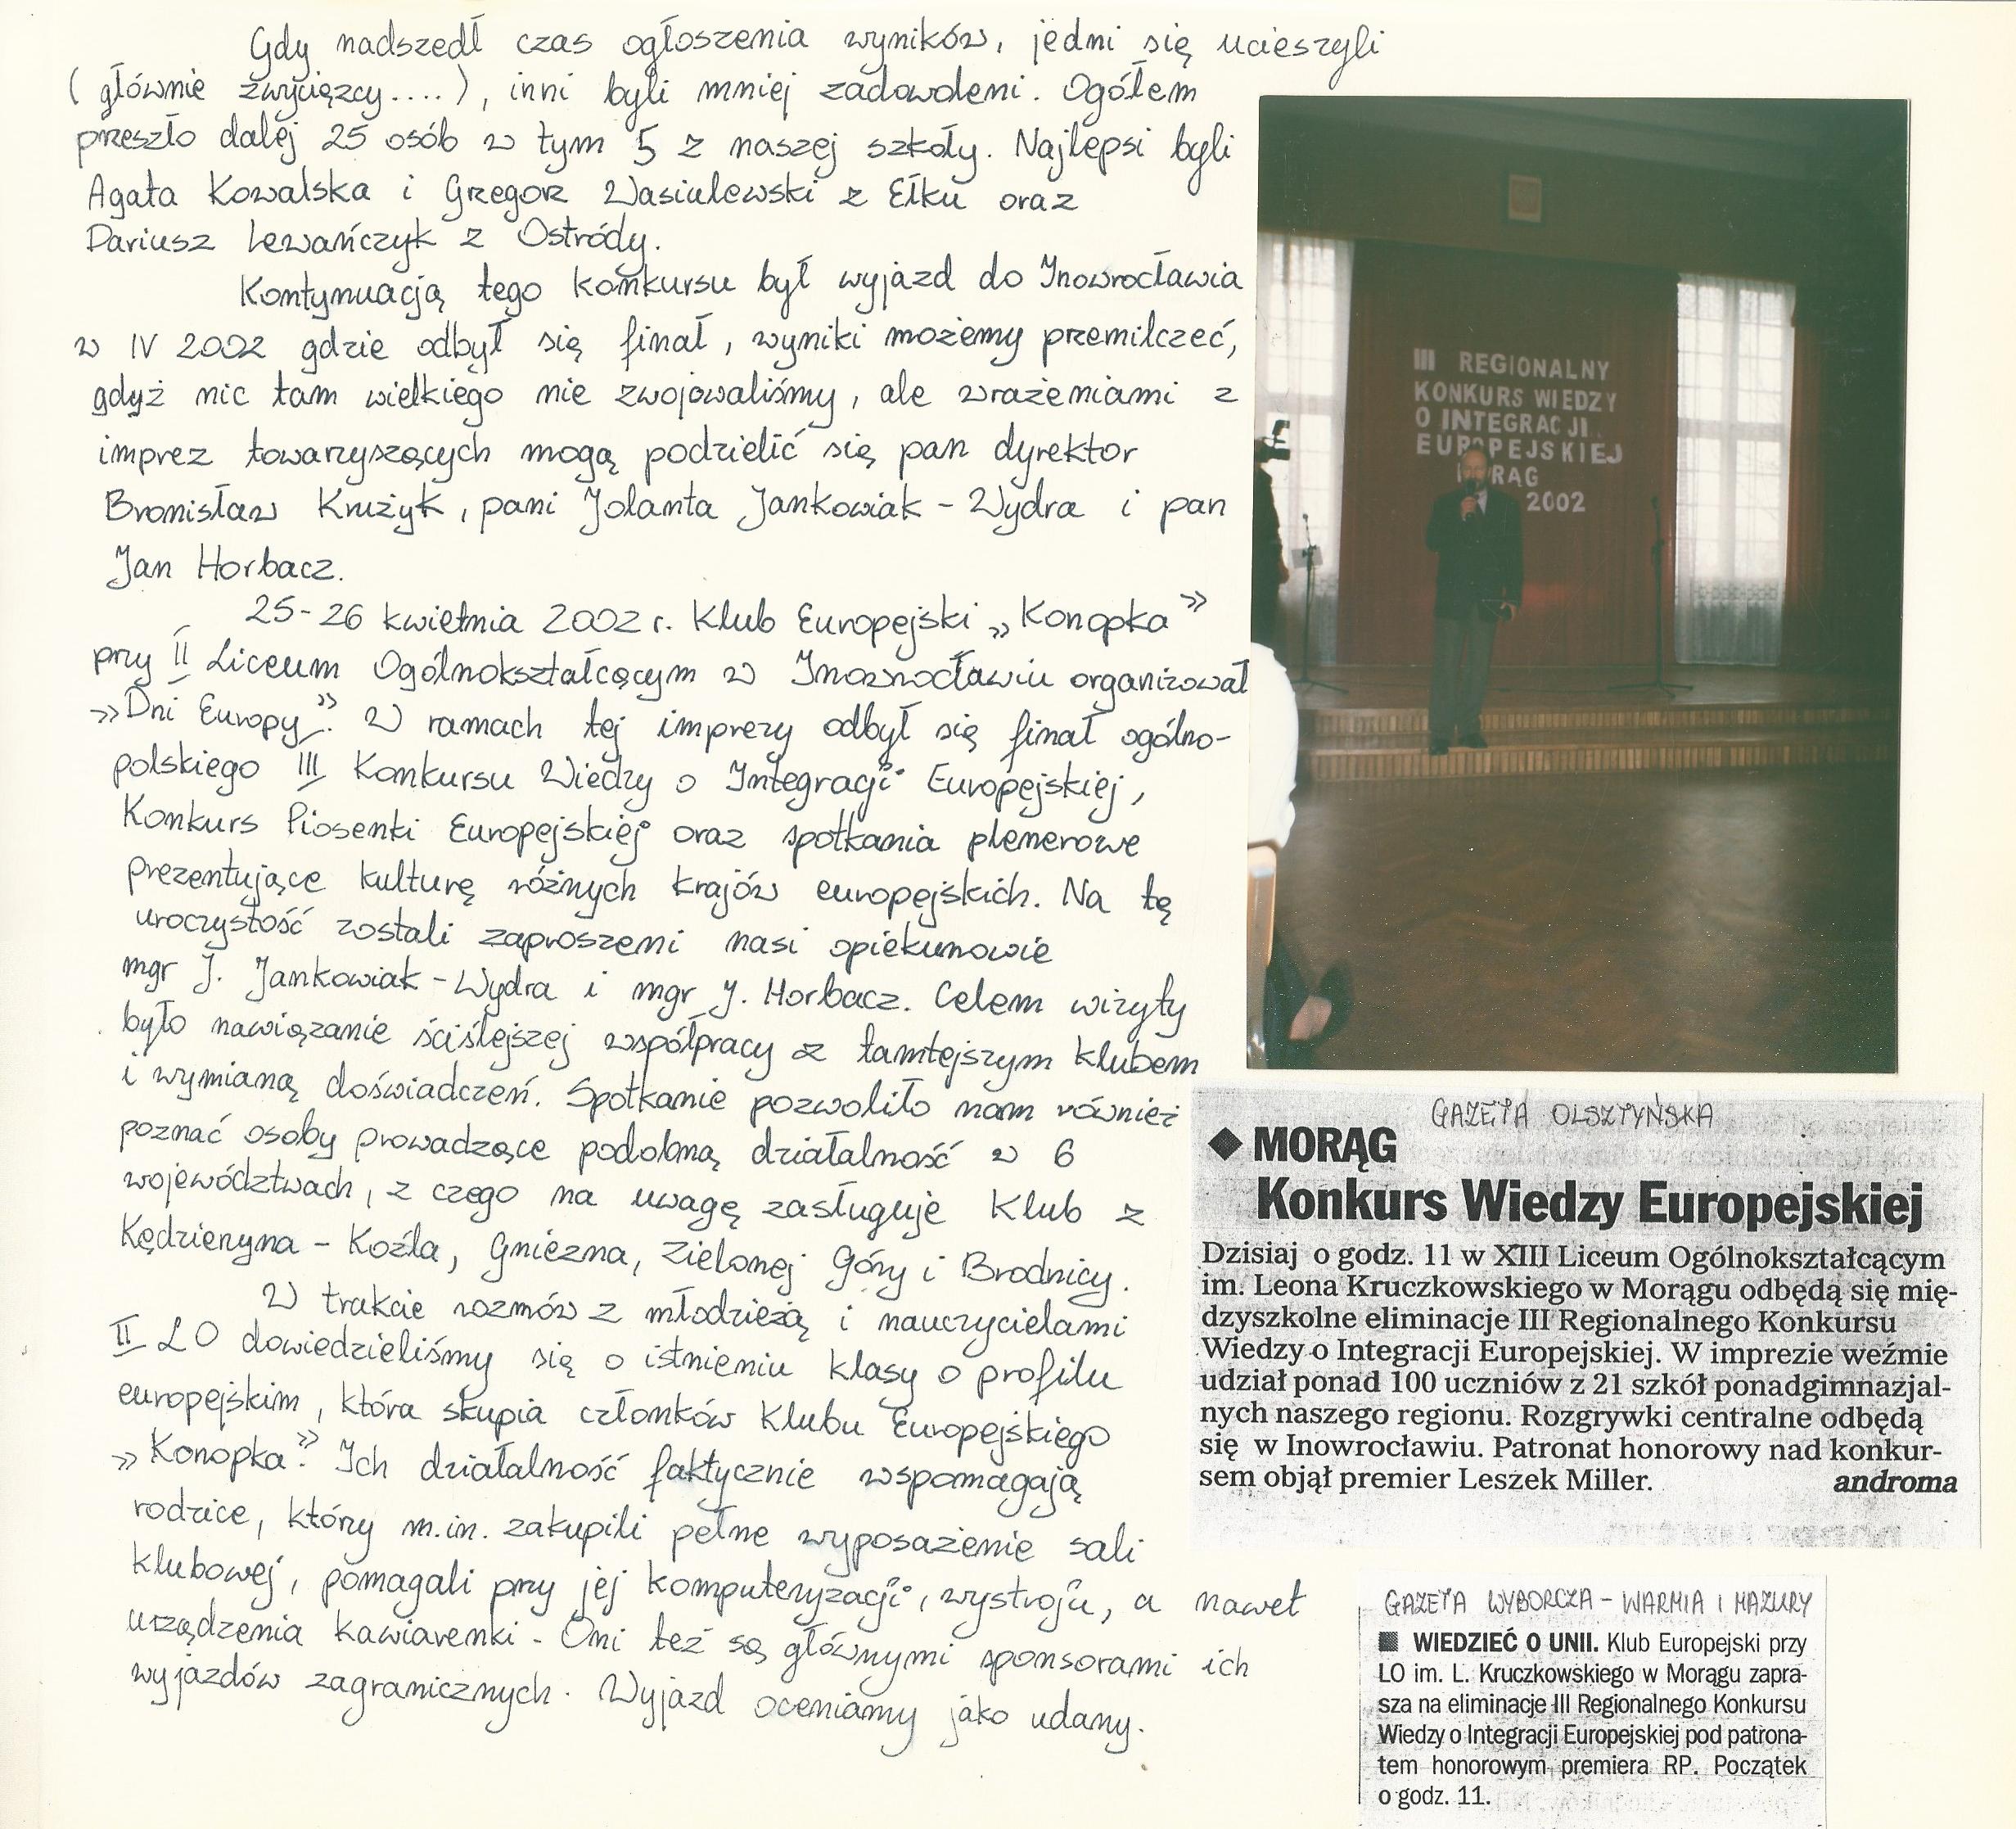 Gdy nadszedł czas ogłoszenia wyników, jedni się ucieszyli
( głównie zwycięzcy....), inni byli mniej zadowoleni. Ogółem
przeszło dalej 25 osób w tym 5 z naszej szkoły. Najlepsi byli
Agata Kowalska i Grzegorz Wasiulewski z Ełku oraz
Dariusz Lewańczyk z Ostródy.
Kontynuacją tego konkursu był wyjazd do Inowrocławia
w IV 2002 gdzie odbył się finał, wyniki możemy przemilczeć,
gdyż nic tam wielkiego nie zwojowaliśmy, ale wrażeniami z
imprez towarzyszących mogą podzielić się pan dyrektor
Bronisław Krużyk, pani Jolanta Jankowiak - Wydra i pan
Jan Horbacz.
25-26 kwietnia 2002 r. Klub Europejski „Konopka”
przy II Liceum Ogólnokształcącym w Inowrocławiu organizował
„Dni Europy”. W ramach tej imprezy odbył się finał ogólno-
polskiego III Konkursu Wiedzy o Integracji Europejskiej,
Konkurs Piosenki Europejskiej oraz spotkania plenerowe
prezentujące kulturę różnych krajów europejskich. Na tę
uroczystość zostali zaproszeni nasi opiekunowie
mgr J. Jankowiak - Wydra i mgr J. Horbacz. Celem wizyty
było nawiązanie ściślejszej współpracy z tamtejszym klubem
i wymianą doświadczeń. Spotkanie pozwoliło nam również
poznać osoby prowadzące podobną działalność w 6
województwach, z czego na uwagę zasługuje Klub z
Kędzierzyna - Koźla, Gniezna, Zielonej Góry i Brodnicy.
W trakcie rozmów z młodzieżą i nauczycielami
II LO dowiedzieliśmy się o istnieniu klasy o profilu
europejskim, która skupia członków Klubu Europejskiego
„Konopka”. Ich działalność faktycznie wspomagają
rodzice, którzy m.in. zakupili pełne wyposażenie sali
klubowej, pomagali przy jej komputeryzacji, wystroju, a nawet
urządzenia kawiarenki. Oni też są głównymi sponsorami ich
wyjazdów zagranicznych. Wyjazd oceniamy jako udany.
III REGIONALNY
KONKURS WIEDZY
O INTEGRACJI
EUROPEJSKIEJ
RĄG
2002
GAZETA OLSZTYŃSKA
◆ MORĄG
Konkurs Wiedzy Europejskiej
Dzisiaj o godz. 11 w XIII Liceum Ogólnokształcącym
im. Leona Kruczkowskiego w Morągu odbędą się mię-
dzyszkolne eliminacje III Regionalnego Konkursu
Wiedzy o Integracji Europejskiej. W imprezie weźmie
udział ponad 100 uczniów z 21 szkół ponadgimnazjal-
nych naszego regionu. Rozgrywki centralne odbędą
się w Inowrocławiu. Patronat honorowy nad konkur-
sem objął premier Leszek Miller. androma
GAZETA WYBORCZA - WARMIA I MAZURY
■ WIEDZIEĆ O UNII. Klub Europejski przy
LO im. L. Kruczkowskiego w Morągu zapra-
sza na eliminacje III Regionalnego Konkursu
Wiedzy o Integracji Europejskiej pod patrona-
tem honorowym premiera RP. Początek
o godz. 11.